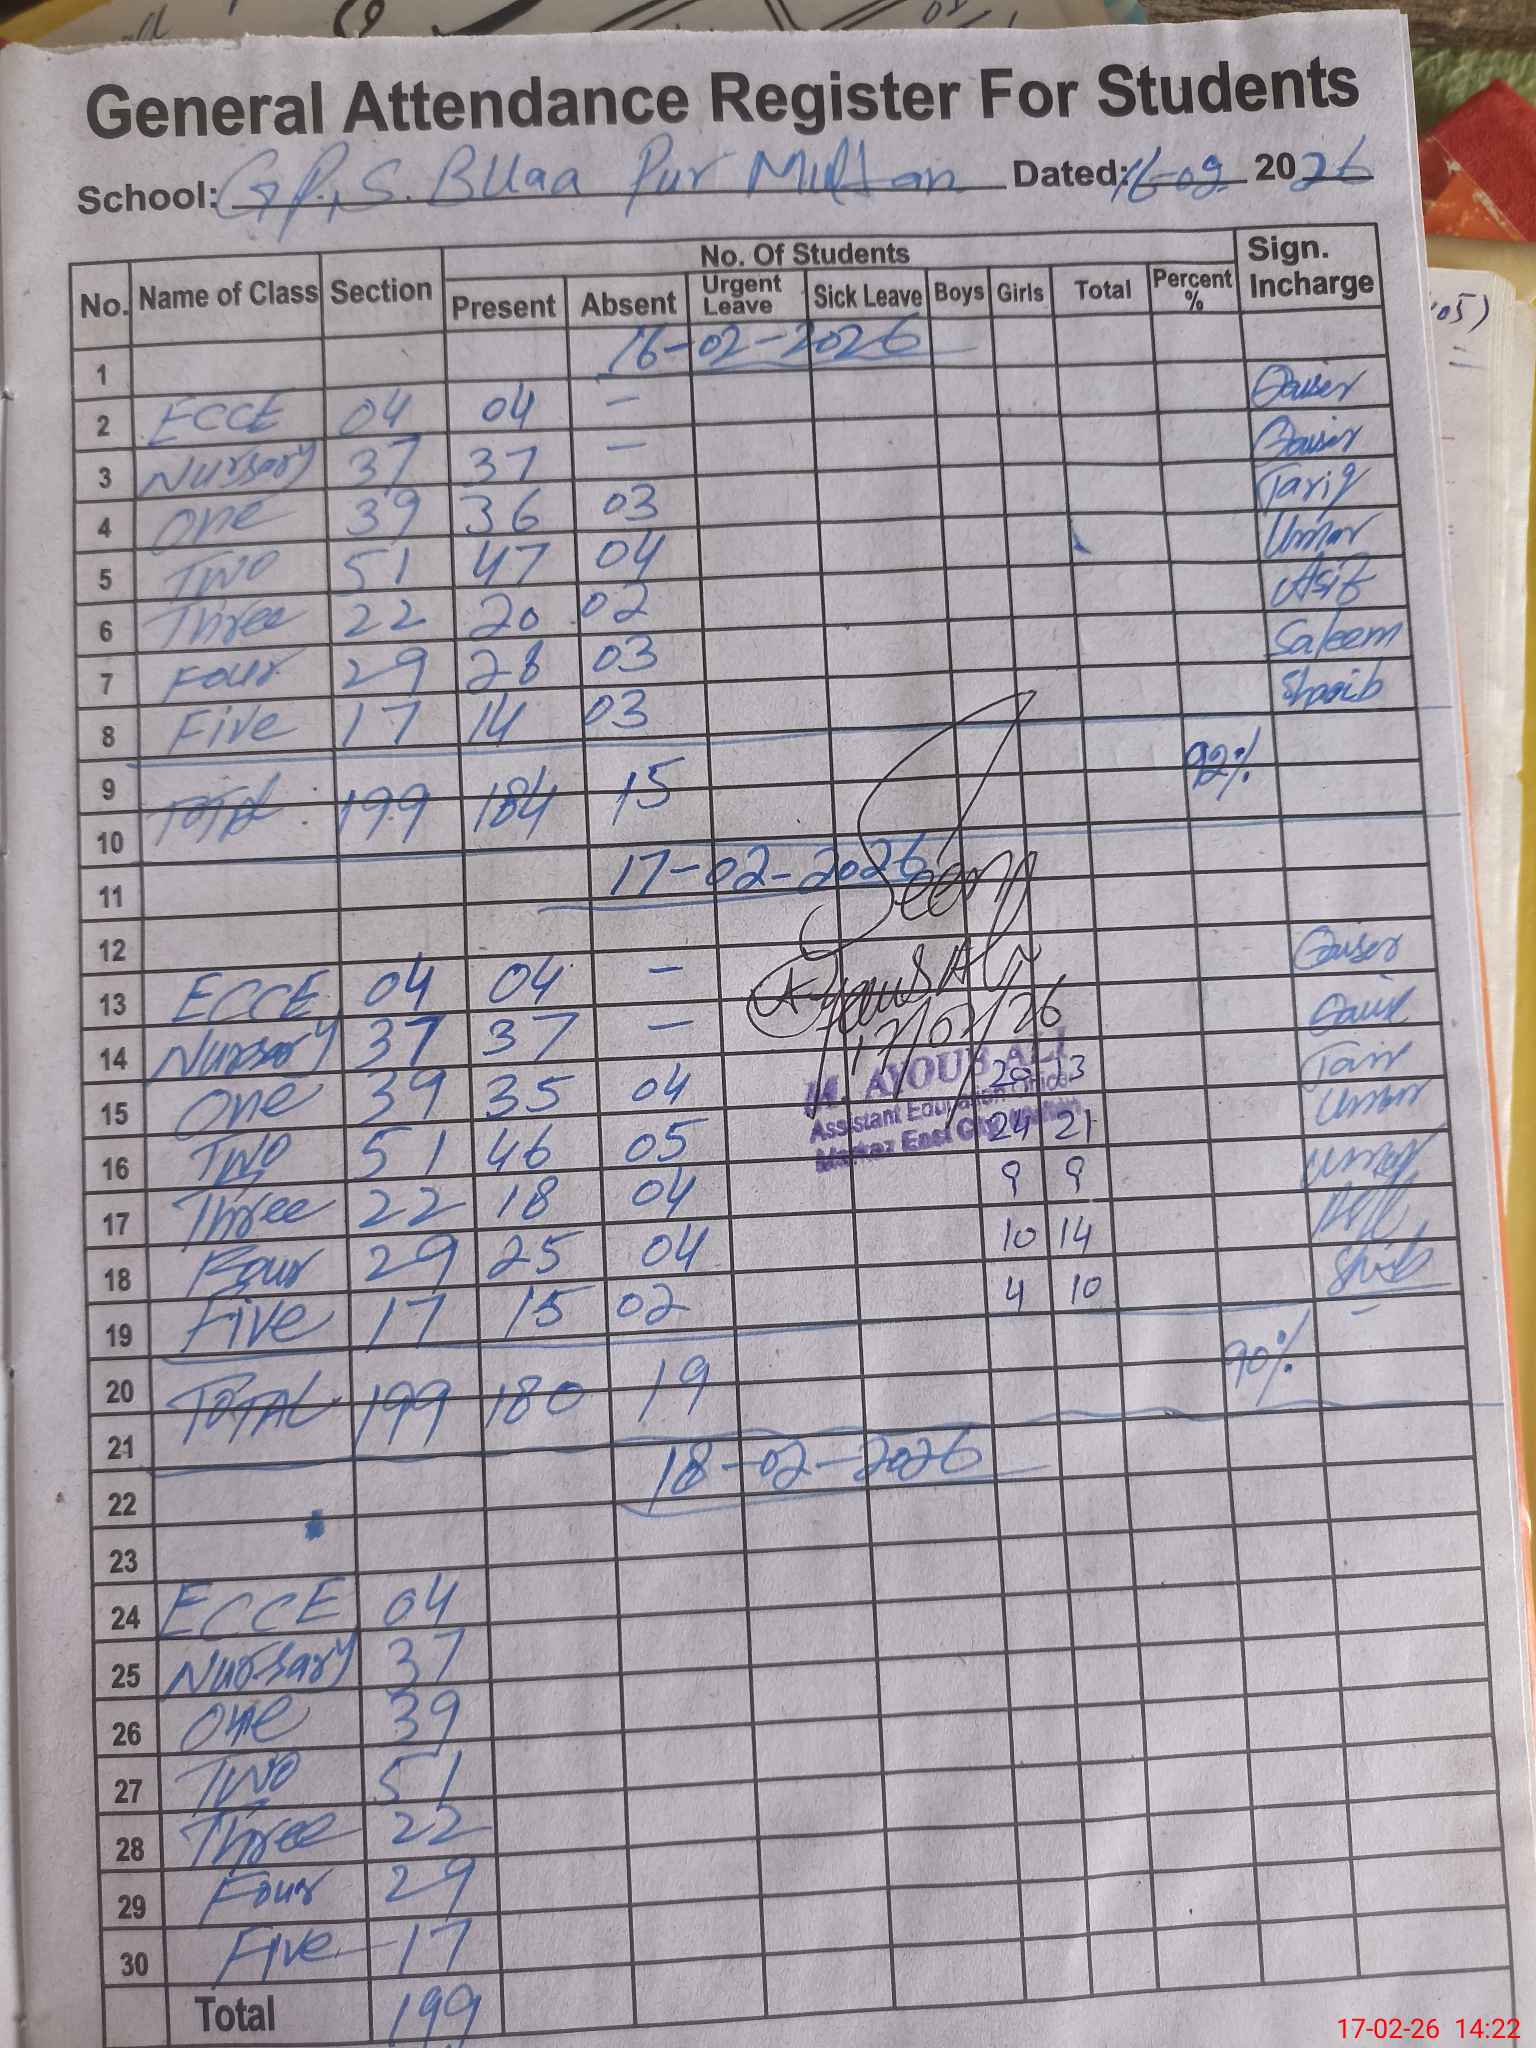 General Attendance Register For Students
School: G.P.S. Bllaa Pur Multan Dated: 16-02 2026
No. Name of Class Section No. Of Students Sign. Incharge
Present Absent Urgent Leave Sick Leave Boys Girls Total Percent %
1 16-02-2026
2 ECCE 04 04 – Qaiser
3 Nursary 37 37 – Qaiser
4 One 39 36 03 Tariq
5 Two 51 47 04 Umar
6 Three 22 20 02 Asif
7 Four 29 28 03 Saleem
8 Five 17 14 03 Shoaib
9 92%
10 TOTAL 199 184 15
11 17-02-2026
Seen
12
13 ECCE 04 04 – Qaiser
17/02/26
14 Nursary 37 37 –
M. AYOUB ALI
Assistant Education Officer
Markaz East City
15 One 39 35 04 20 13
16 Two 51 46 05 24 21 Umar
17 Three 22 18 04 9 9 Umar
18 Four 29 25 04 10 14
19 Five 17 15 02 4 10
20 90%
21 TOTAL 199 180 19
22 18-02-2026
23
24 ECCE 04
25 Nursary 37
26 One 39
27 Two 51
28 Three 22
29 Four 29
30 Five 17
Total 199
05)
17-02-26 14:22